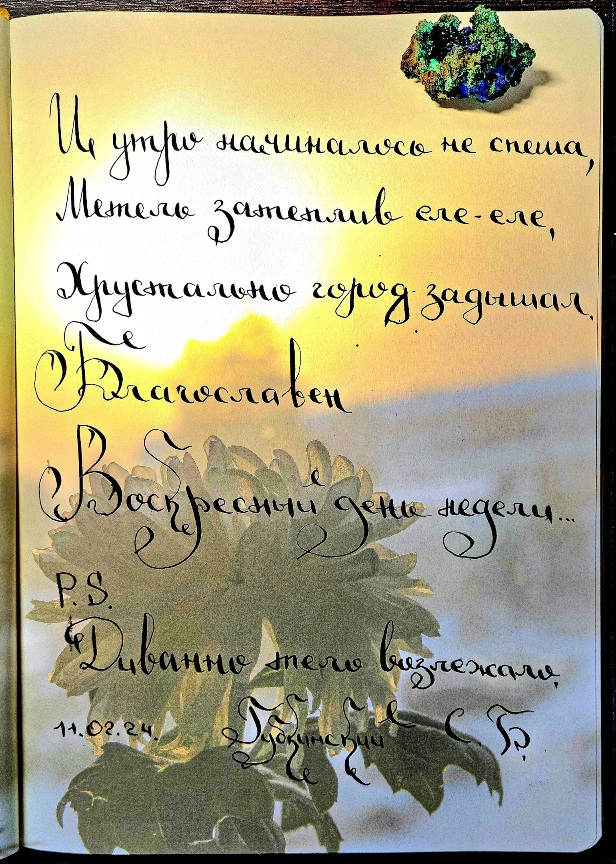 И утро начиналось не спеша,
Метель затеплив еле-еле,
Хрустально город задышал,
Благославен
Воскресный день недели...
P.S.
Диванно тело возлежало,
11.02.24. Губкинский С.Б.